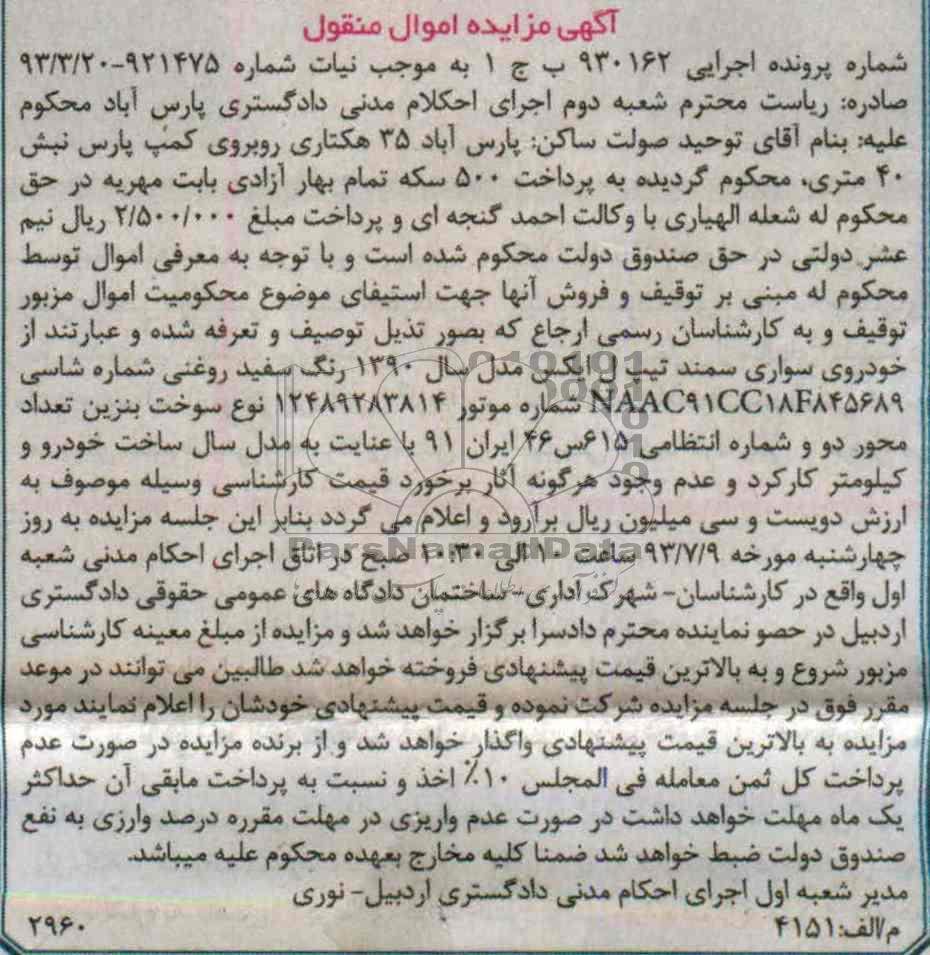 آگهی مزایده اموال منقول
شماره پرونده اجرایی ۹۳۰۱۶۲ ب ج ۱ به موجب نیات شماره ۹۲۱۴۷۵-۹۳/۳/۲۰
صادره: ریاست محترم شعبه دوم اجرای احکلام مدنی دادگستری پارس آباد محکوم
علیه: بنام آقای توحید صولت ساکن: پارس آباد ۳۵ هکتاری روبروی کمپ پارس نبش
۴۰ متری، محکوم گردیده به پرداخت ۵۰۰ سکه تمام بهار آزادی بابت مهریه در حق
محکوم له شعله الهیاری با وکالت احمد گنجه ای و پرداخت مبلغ ۲/۵۰۰/۰۰۰ ریال نیم
عشر دولتی در حق صندوق دولت محکوم شده است و با توجه به معرفی اموال توسط
محکوم له مبنی بر توقیف و فروش آنها جهت استیفای موضوع محکومیت اموال مزبور
توقیف و به کارشناسان رسمی ارجاع که بصور تذیل توصیف و تعرفه شده و عبارتند از
خودروی سواری سمند تیپ ال ایکس مدل سال ۱۳۹۰ رنگ سفید روغنی شماره شاسی
NAAC۹۱CC۱۸F۸۴۵۶۸۹ شماره موتور ۱۲۴۸۹۲۸۳۸۱۴ نوع سوخت بنزین تعداد
محور دو و شماره انتظامی ۶۱۵س۴۶ ایران ۹۱ با عنایت به مدل سال ساخت خودرو و
کیلومتر کارکرد و عدم وجود هرگونه آثار برخورد قیمت کارشناسی وسیله موصوف به
ارزش دویست و سی میلیون ریال برآرود و اعلام می گردد بنابر این جلسه مزایده به روز
چهارشنبه مورخه ۹۳/۷/۹ ساعت ۱۰ الی ۱۰:۳۰ صبح در اتاق اجرای احکام مدنی شعبه
اول واقع در کارشناسان- شهرک اداری- ساختمان دادگاه های عمومی حقوقی دادگستری
اردبیل در حصو نماینده محترم دادسرا برگزار خواهد شد و مزایده از مبلغ معینه کارشناسی
مزبور شروع و به بالاترین قیمت پیشنهادی فروخته خواهد شد طالبین می توانند در موعد
مقرر فوق در جلسه مزایده شرکت نموده و قیمت پیشنهادی خودشان را اعلام نمایند مورد
مزایده به بالاترین قیمت پیشنهادی واگذار خواهد شد و از برنده مزایده در صورت عدم
پرداخت کل ثمن معامله فی المجلس ۱۰٪ اخذ و نسبت به پرداخت مابقی آن حداکثر
یک ماه مهلت خواهد داشت در صورت عدم واریزی در مهلت مقرره درصد وارزی به نفع
صندوق دولت ضبط خواهد شد ضمنا کلیه مخارج بعهده محکوم علیه میباشد.
مدیر شعبه اول اجرای احکام مدنی دادگستری اردبیل- نوری
م/الف:۴۱۵۱
۲۹۶۰
ParsNamadData